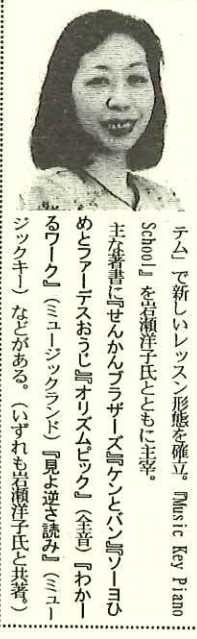 テム」で新しいレッスン形態を確立。『Music Key Piano
School』を岩瀬洋子氏とともに主宰。
主な著書に『せんかんブラザーズ』『ケンとバン』『ソーヨひ
めとファーデスおうじ』『オリズムピック』(全音)『わかー
るワーク』(ミュージックランド)『見よ逆さ読み』(ミュー
ジックキー)などがある。(いずれも岩瀬洋子氏と共著。)